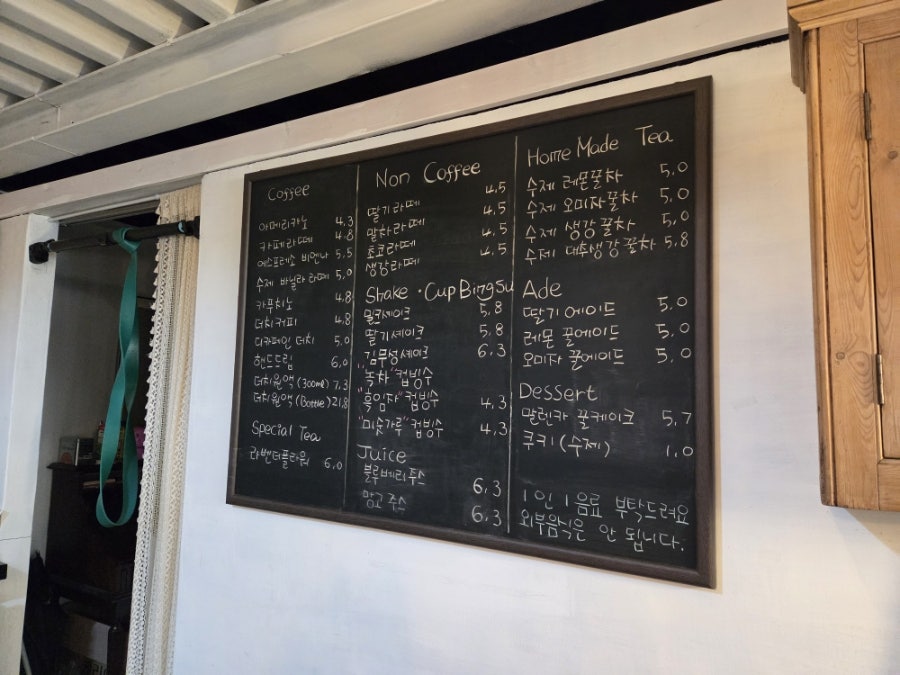 Coffee
아메리카노 4,3
카페라떼 4.8
에스프레소 비엔나 5,5
수제 바닐라 라떼 5,0
카푸치노 4.8
더치커피 4,8
디카페인 더치 5.0
핸드드립 6,0
더치원액 (300ml) 7,3
더치원액 (Bottle) 21.8
Special Tea
라벤더플라워 6,0
Non Coffee
딸기라떼 4,5
말차라떼 4,5
초코라떼 4,5
생강라떼 4,5
Shake · Cup Bingsu
밀크셰이크 5,8
딸기셰이크 5.8
"김무성셰이크 6,3
"녹차" 컵빙수
"흑임자" 컵빙수 4,3
"미숫가루" 컵빙수 4,3
Juice
블루베리주스 6,3
망고주스 6,3
Home Made Tea
수제 레몬꿀차 5,0
수제 오미자꿀차 5,0
수제 생강꿀차 5,0
수제 대추생강꿀차 5,8
Ade
딸기에이드 5,0
레몬 꿀에이드 5,0
오미자 꿀에이드 5,0
Dessert
말렌카 꿀케이크 5,7
쿠키(수제) 1,0
1인 1음료 부탁드려요
외부음식은 안 됩니다.